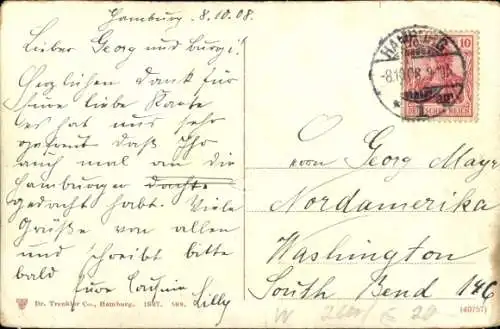 Hamburg, 8.10.08.
Lieber Georg und Burgi!
Herzlichen Dank für
Eure liebe Karte
es hat uns sehr
gefreut daß Ihr
auch mal an die
Hamburger dachte
gedacht habt. Viele
Grüße von allen
und schreibt bitte
bald Eure Cousine
Lilly
HAMBURG
-8.10.08. 9-10
10
DEUTSCHES REICH
Herrn Georg Mayr
Nordamerika
Washington
South Bend 146
Dr. Trenkler Co., Hamburg. 1907.
(40757)